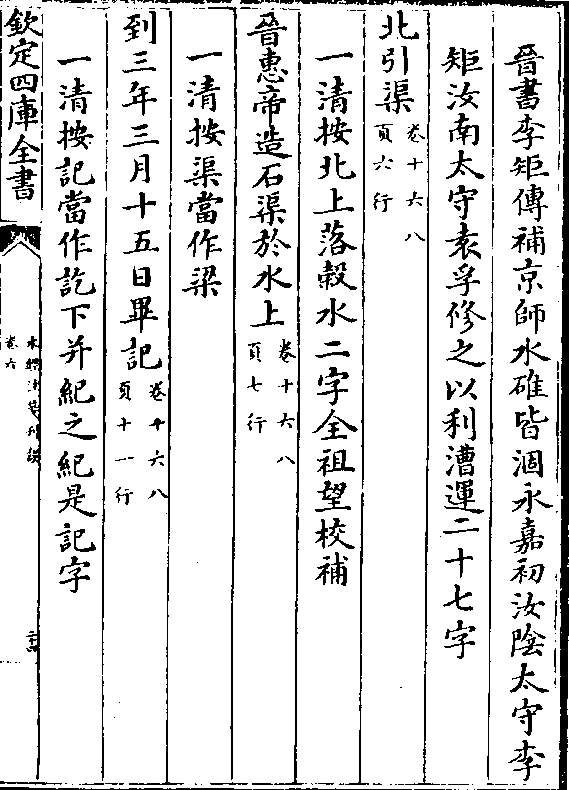 晉書李矩傳補京師水碓皆涸永嘉初汝陰太守李
矩汝南太守袁孚修之以利漕運二十七字
北引渠卷十六八頁六行
一清按北上落榖水二字全祖望校補
晉惠帝造石渠於水上卷十六八頁七行
一清按渠當作梁
到三年三月十五日畢記卷十六八頁十一行
一清按記當作訖下并紀之紀是記字
欽定四庫全書
卷六